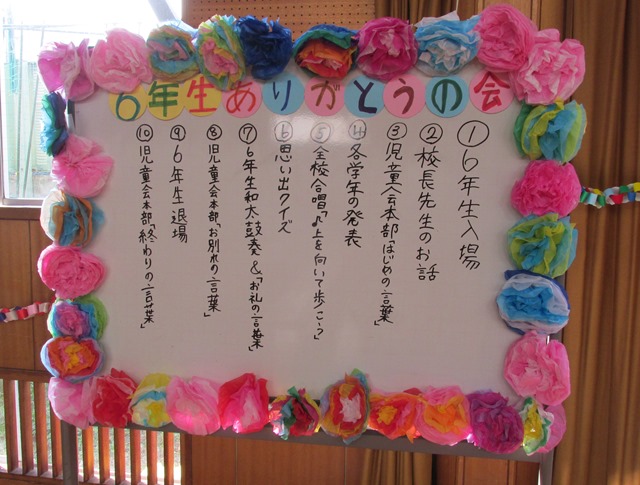 6年生ありがとうの会
①6年生入場
②校長先生のお話
③児童会本部「はじめの言葉」
④各学年の発表
⑤全校合唱「♪上を向いて歩こう」
⑥思い出クイズ
⑦6年生和太鼓奏&「お礼の言葉」
⑧児童会本部「お別れの言葉」
⑨6年生退場
⑩児童会本部「終わりの言葉」